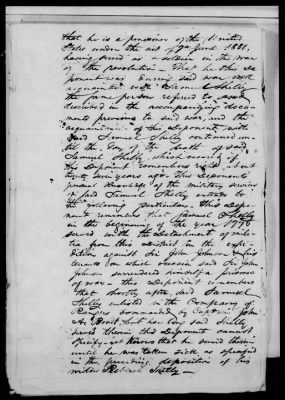 that he is a pensioner of the United
States under the act of 7th June 1832,
having served as a soldier in the war
of the Revolution — That he this De
ponent was during said war well
acquainted with Samuel Shelly
the
described in the accompanying docu
ments previous to said war, and the
acquaintance of this Deponent with
said Samuel Shelly continued un
til the day of the death of said
Samuel Shelly which occurred if
this Deponent remembers right about
twenty five years ago. This Deponents
personal knowledge of the military services
of said Samuel Shelly extends to
the following particulars. This Depo
nent remembers that Samuel Shelly
in the beginning of the year 1776
served with the Detachment of mili
tia from this District in the expe
dition against Sir John Johnson
on which occasion said Sir John
Johnson surrendered himself a prisoner
of war — This Deponent remembers
that shortly after said Samuel
Shelly enlisted in the Company of
Rangers commanded by Captain John
A. Bradt, but how long said Shelly
served therein this Deponent cannot
specify, yet knows that he served therein
until he was taken sick as specified
in the preceding deposition of his
widow Rebecca Shelly —